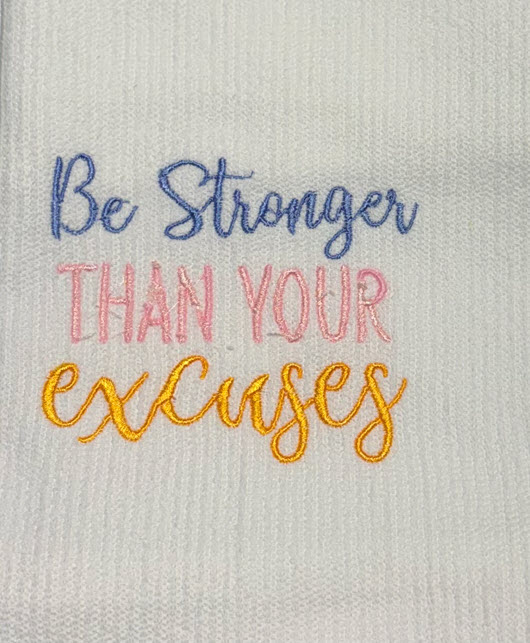 Be Stronger
THAN YOUR
excuses